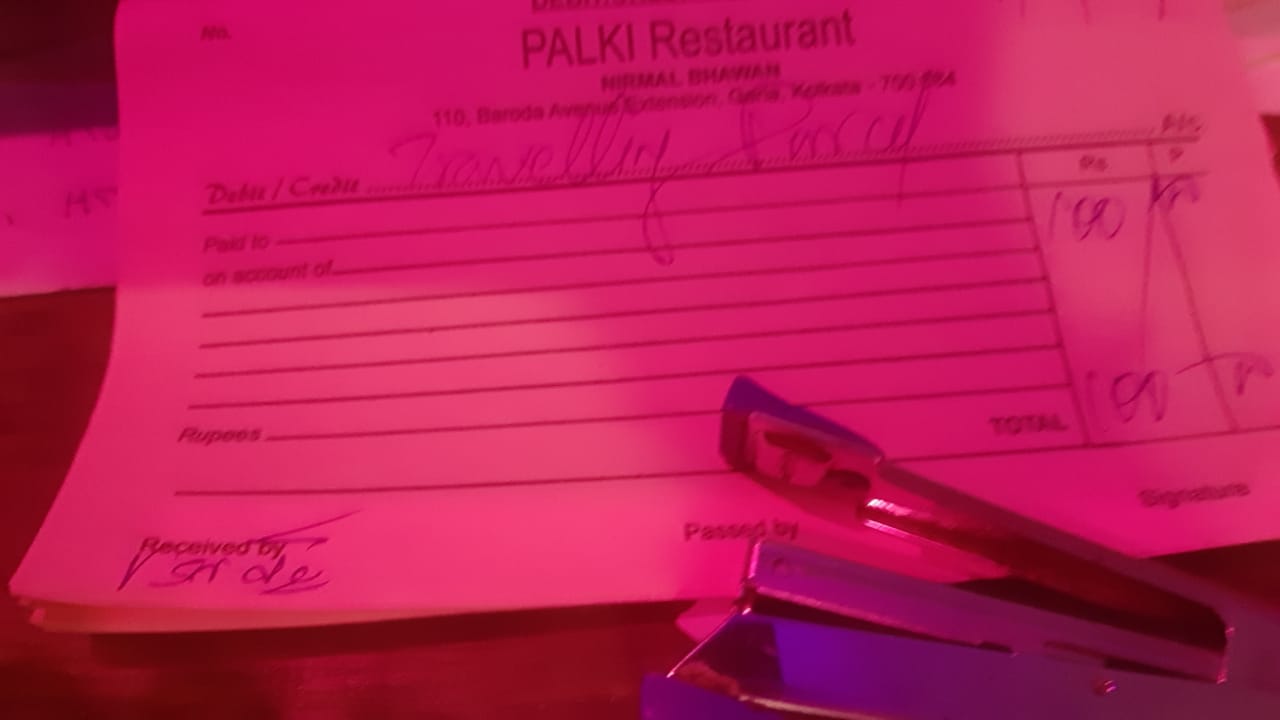 No.
PALKI Restaurant
NIRMAL BHAWAN
110, Baroda Avenue Extension, Garia, Kolkata - 700 084
Debit / Credit Travelling Parcel A/c.
Rs. P.
Paid to 100
on account of
Rupees
TOTAL 100
Signature
Received by Passed by